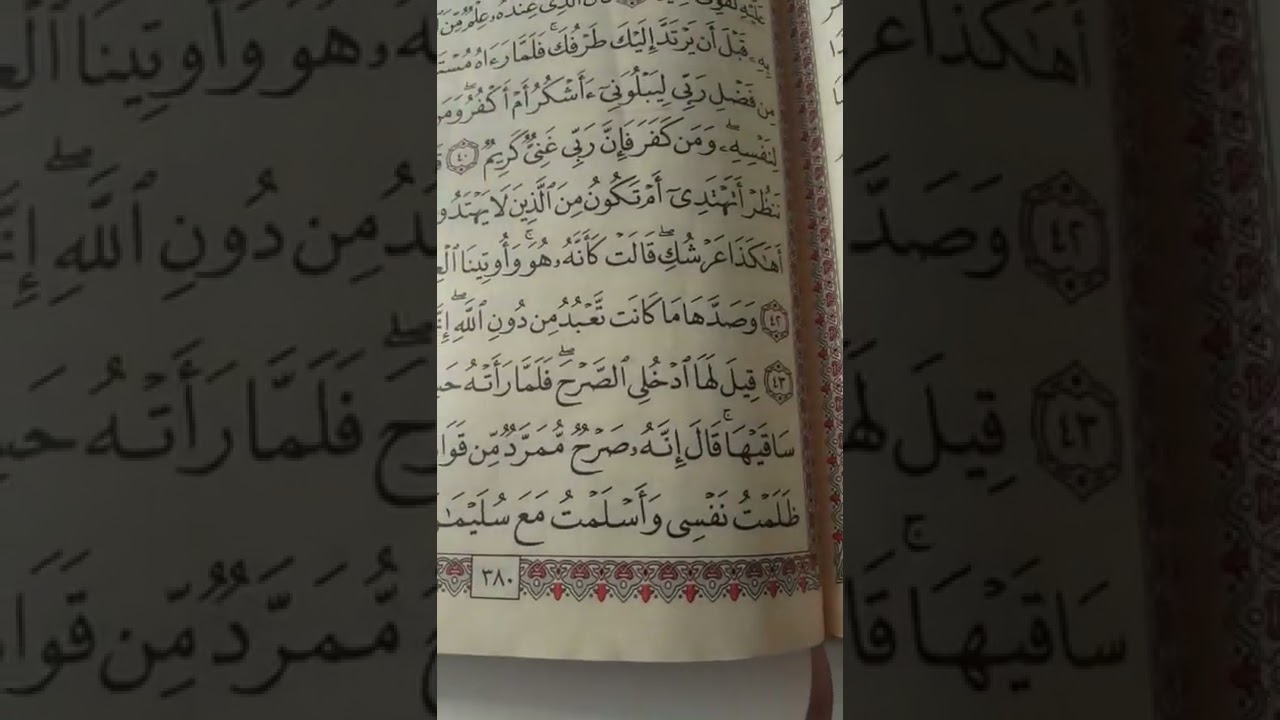 عَلَيْهِ لَقَوِىٌّ قَالَ ٱلَّذِى عِندَهُۥ عِلْمٌ مِّنَ
بِهِۦ قَبْلَ أَن يَرْتَدَّ إِلَيْكَ طَرْفُكَ ۚ فَلَمَّا رَءَاهُ مُسْتَ
مِن فَضْلِ رَبِّى لِيَبْلُوَنِىٓ ءَأَشْكُرُ أَمْ أَكْفُرُ ۖ وَمَن
لِنَفْسِهِۦ ۖ وَمَن كَفَرَ فَإِنَّ رَبِّى غَنِىٌّ كَرِيمٌ ٤٠
نَنظُرْ أَتَهْتَدِىٓ أَمْ تَكُونُ مِنَ ٱلَّذِينَ لَا يَهْتَدُو
أَهَٰكَذَا عَرْشُكِ ۖ قَالَتْ كَأَنَّهُۥ هُوَ ۚ وَأُوتِينَا ٱلْعِ
٤٢ وَصَدَّهَا مَا كَانَت تَّعْبُدُ مِن دُونِ ٱللَّهِ ۖ إِنَّ
٤٣ قِيلَ لَهَا ٱدْخُلِى ٱلصَّرْحَ ۖ فَلَمَّا رَأَتْهُ حَسِ
سَاقَيْهَا ۚ قَالَ إِنَّهُۥ صَرْحٌ مُّمَرَّدٌ مِّن قَوَا
ظَلَمْتُ نَفْسِى وَأَسْلَمْتُ مَعَ سُلَيْمَٰ
٣٨٠